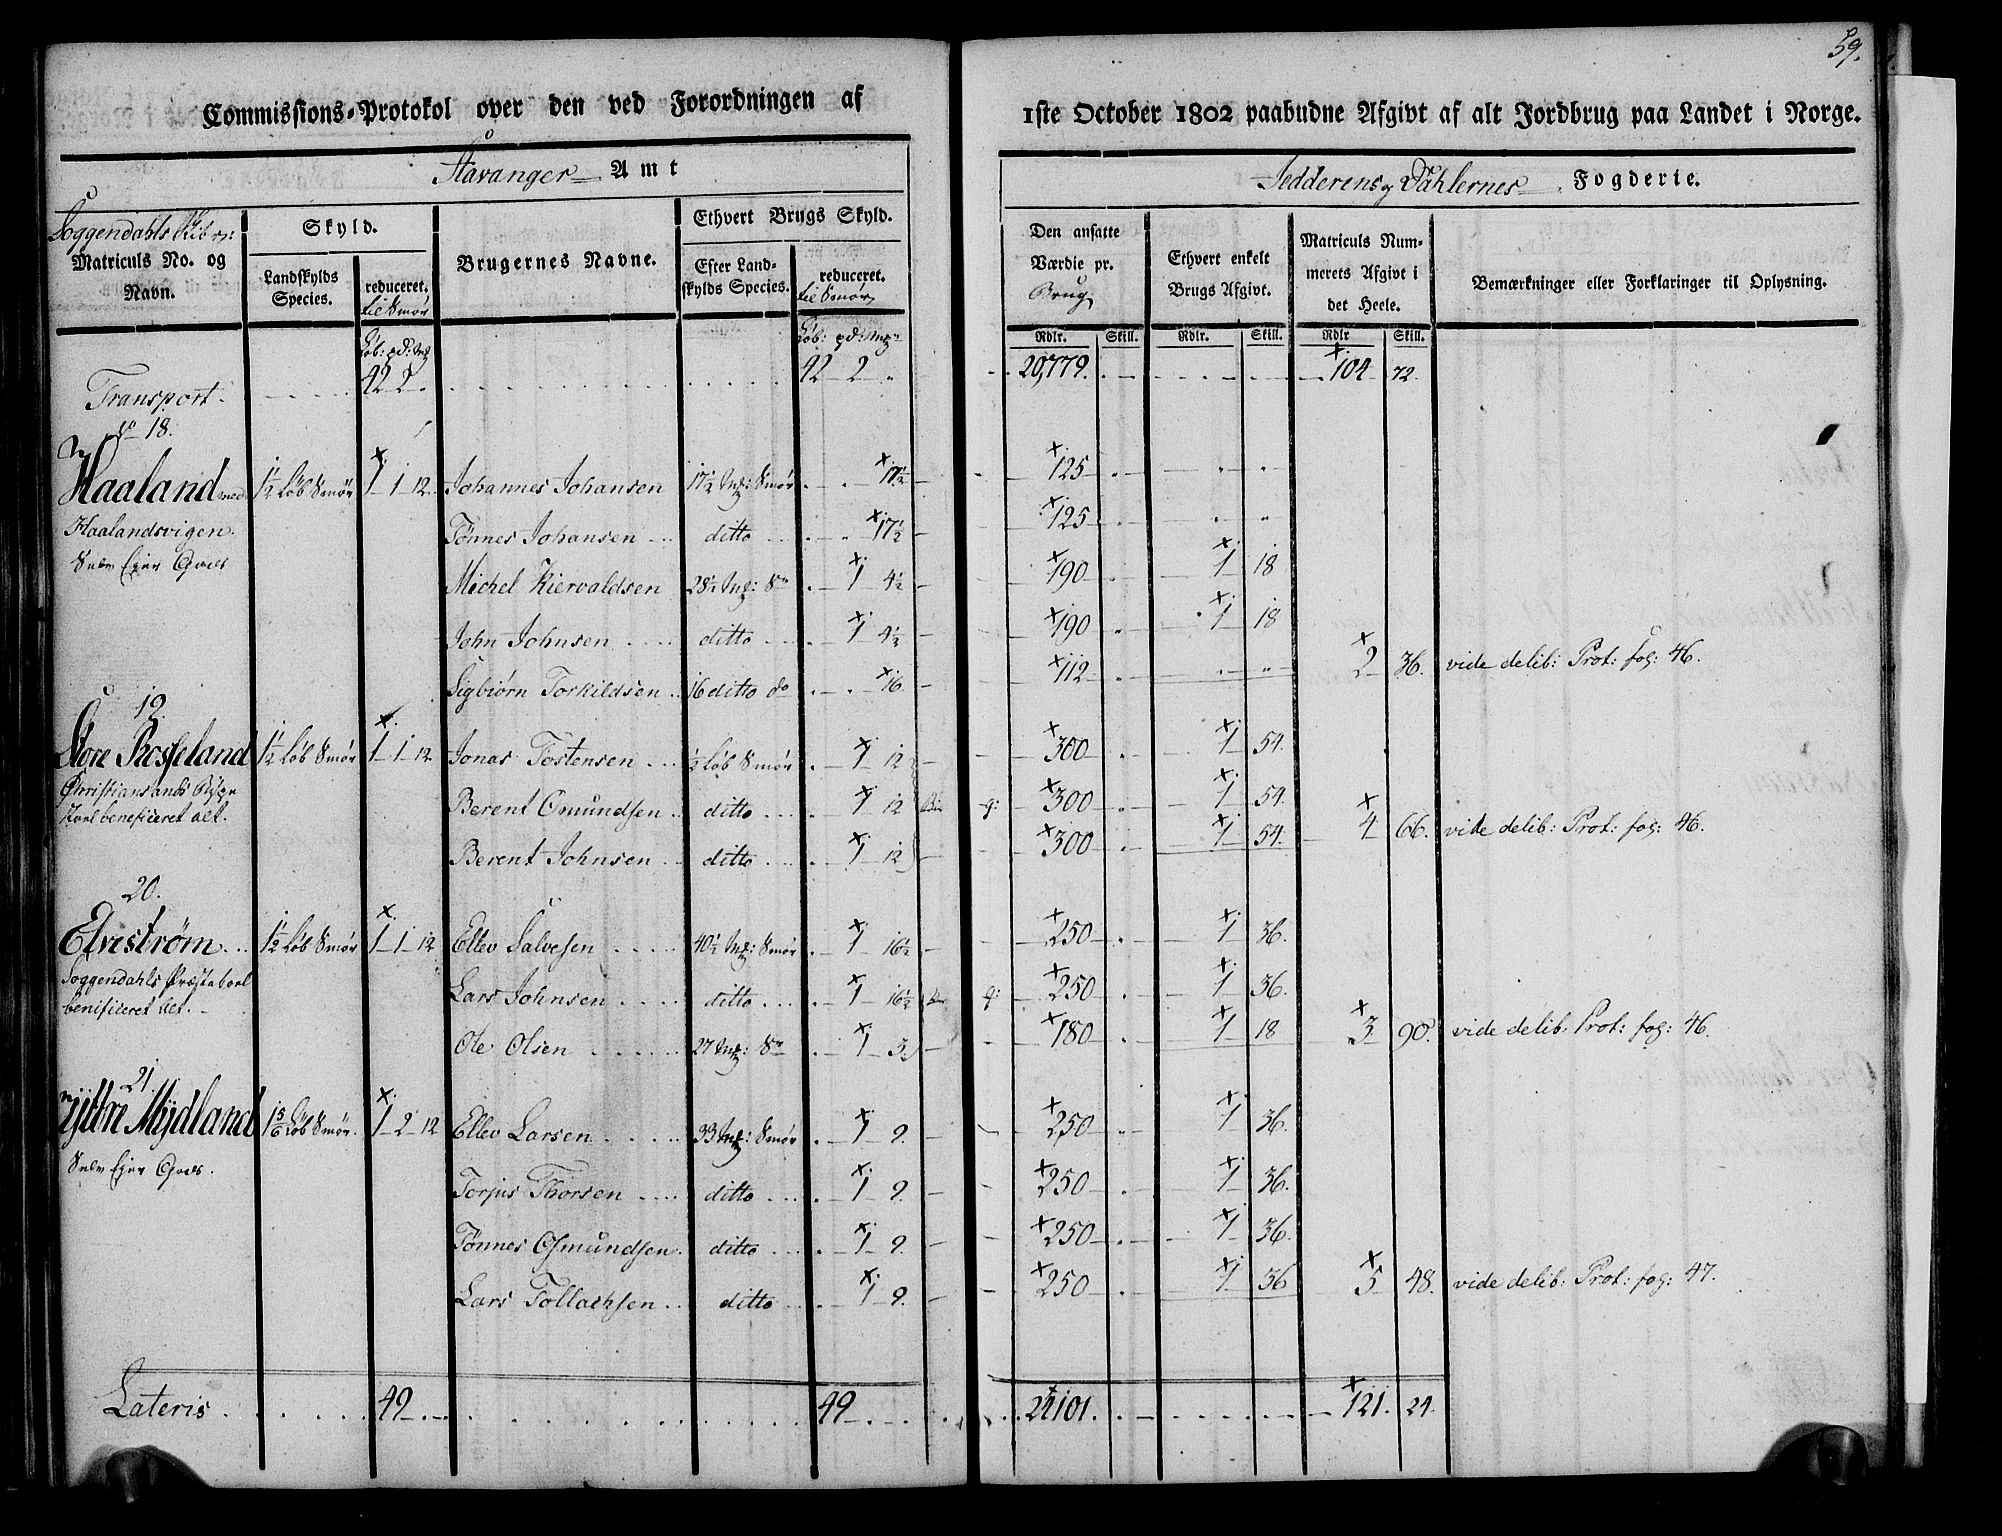 59.
Commissions-Protokol over den ved Forordningen af 1ste October 1802 paabudne Afgivt af alt Jordbrug paa Landet i Norge.
Stavanger Amt
Jedderens og Dahlernes Fogderie.
Soggendahls Skibr:
Matriculs No. og Navn.
Skyld.
Landskylds Species.
reduceret. til Smør
Brugernes Navne.
Ethvert Brugs Skyld.
Efter Landskylds Species.
reduceret. til Smør
Den ansatte Værdie pr. Brug
Ethvert enkelt Brugs Afgivt.
Matriculs Nummerets Afgivt i det Heele.
Bemærkninger eller Forklaringer til Oplysning.
Løb: pd: mg Løb: pd: mg Rdlr. Skill. Rdlr. Skill. Rdlr Skill.
Transport 42 2 42 2 20,779. 104 72.
No 18.
Haaland med 1½ Løb Smør 1 1 12 Johannes Johansen 17½ mg: Smør 17½ 125
Haalandsvigen. Tønnes Johansen ditto 17½ 125
Selv Ejer Gods Michel Kiervaldsen 28½ mg: Sm 1 4½ 190 1 18
John Johnsen ditto 1 4½ 190 1 18
Sigbiørn Torkildsen 16 ditto do 16 112 2 36. vide delib: Prot: fog: 46.
19.
Store Rosseland 1½ Løb Smør 1 1 12 Jonas Tostensen ½ Løb Smør 1 12 300 1 54.
Christiansands Bispe Berent Omundsen ditto 1 12 300 1 54.
Stoel beneficeret alt. Berent Johnsen ditto 1 12 300 1 54. 4 66. vide delib: Prot: fog: 46.
20.
Elvestrøm 1½ Løb Smør 1 1 12 Ellev Salvesen 40½ mg: Smør 1 16½ 250 1 36.
Soggendahls Præsteboel Lars Johnsen ditto 1 16½ 250 1 36.
benificeret alt. Ole Olsen 27 mg: Sm 1 3. 180 1 18 3 90. vide delib: Prot: fog: 46.
21.
Yttre Mydland 1 5/6 Løb Smør. 1 2 12 Ellev Larsen 33 mg: Smør 1 9. 250 1 36.
Selv Ejer Gods. Torjus Thorsen ditto 1 9. 250 1 36.
Tønnes Osmundsen ditto 1 9. 250 1 36.
Lars Tollachsen ditto 1 9. 250 1 36 5 48. vide delib: Prot: fog: 47.
Lateris 49 49 24101. 121. 24.